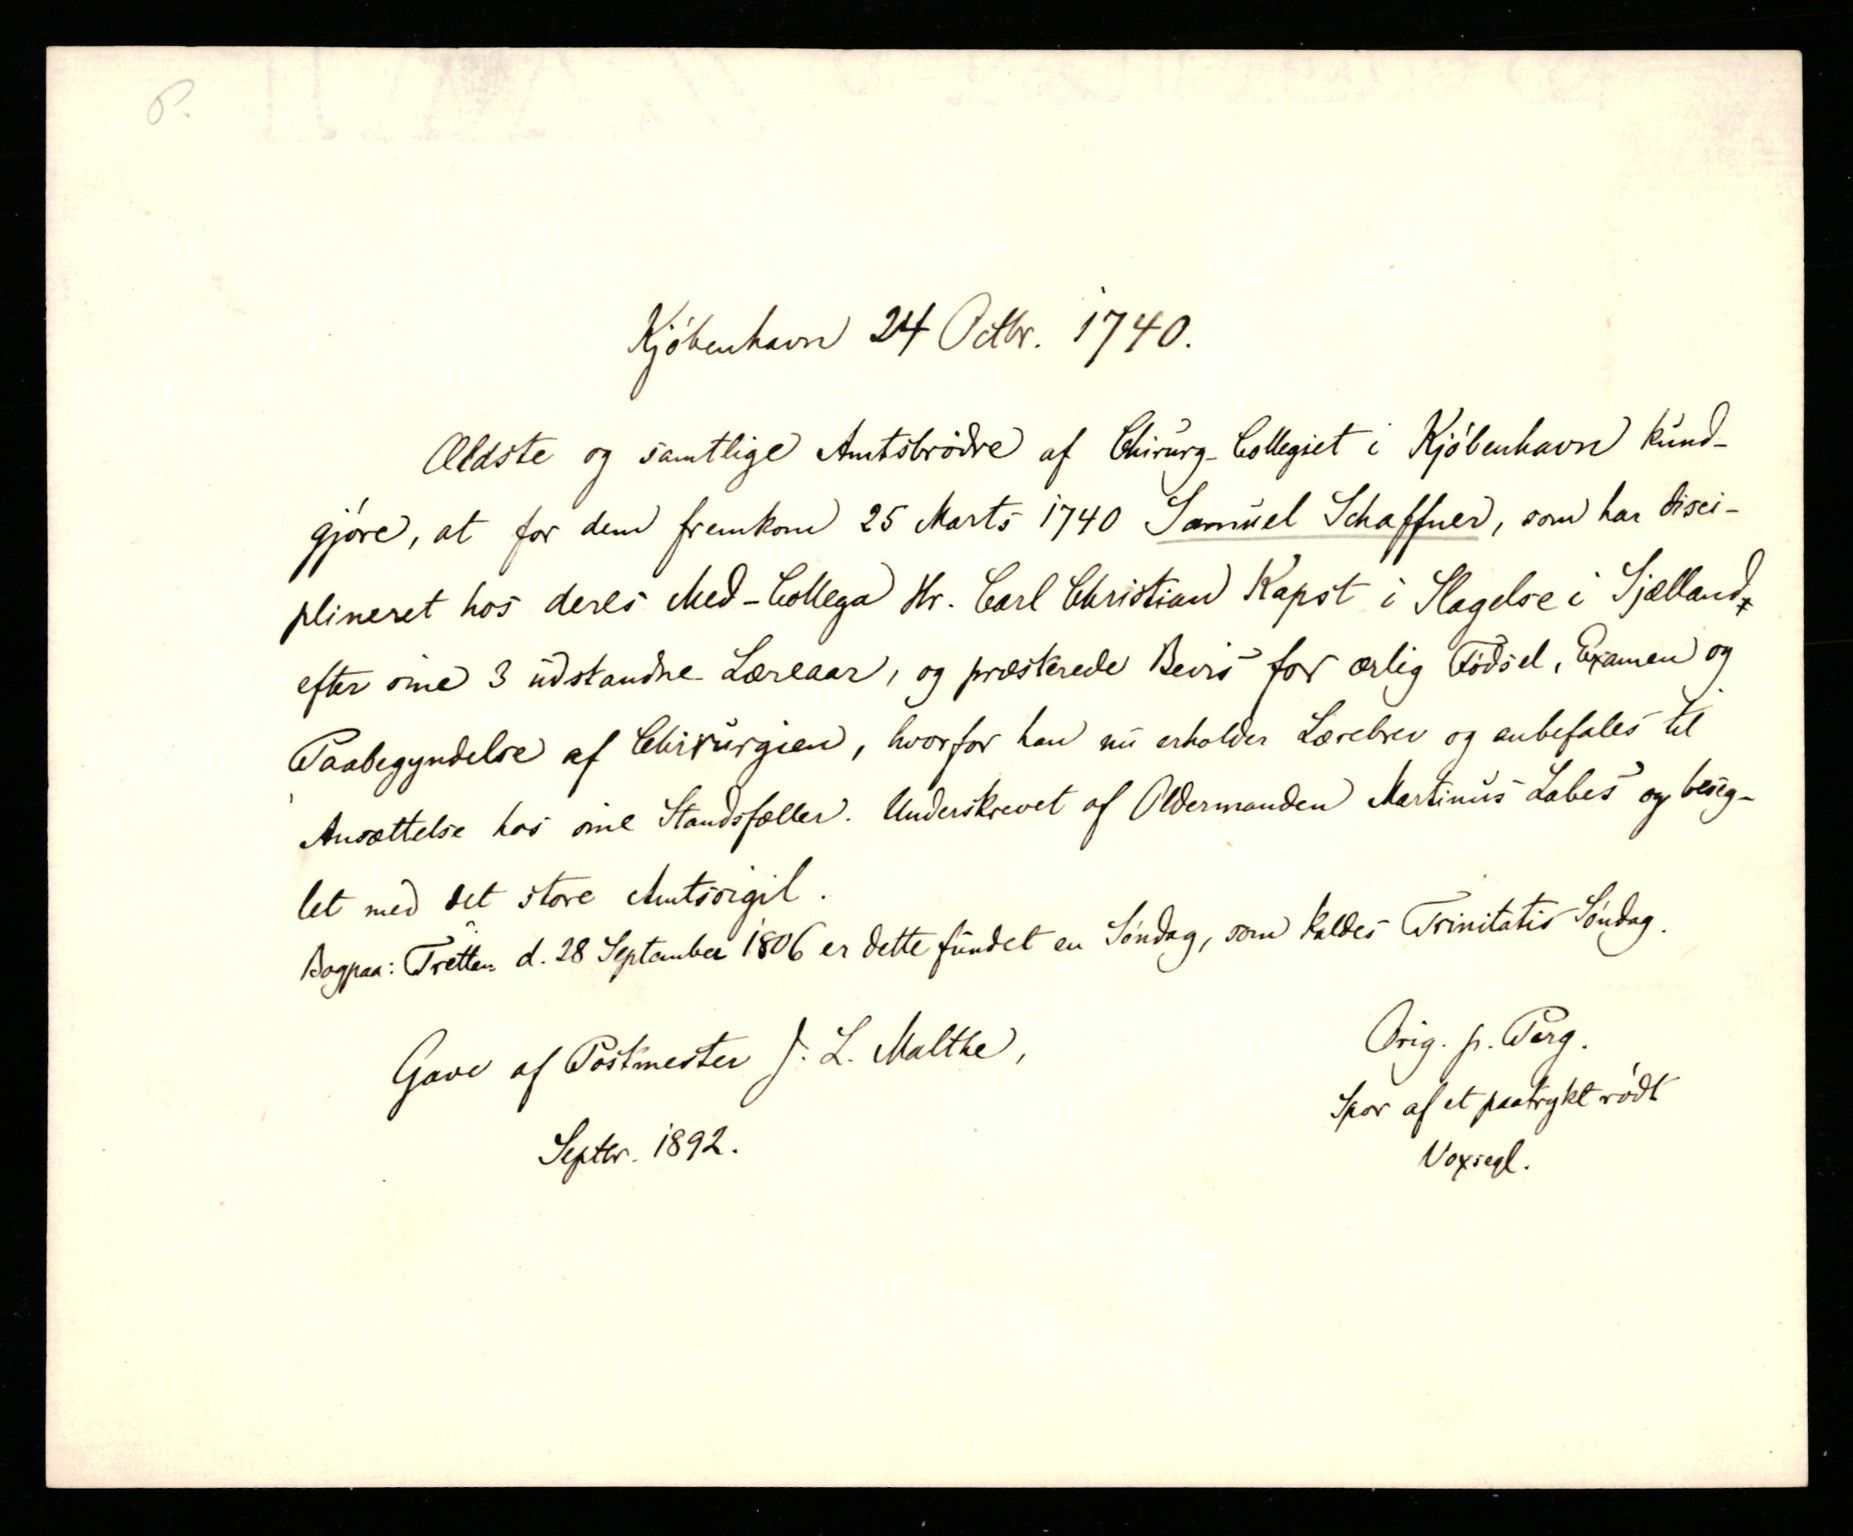 P.
Kjóbenhavn 24 Octbr. 1740.
Ældste og samtlige Amtsbrödre af Chirurg-Collegiet i Kjóbenhavn kund-
gjóre, at for dem fremkom 25 Marts 1740 Samuel Schaffner, som har disci-
plineret hos deres Med-Collega Hr. Carl Christian Kapst i Slagelse i Sjælland,
efter sine 3 udstandne Læreaar, og præsterede Bevis for ærlig Fódsel, Examen og
Paabegyndelse af Chirurgien, hvorfor han nu erholder Lærebrev og anbefales til
Ansættelse hos sine Standsfæller. Underskrevet af Oldermanden Martinus Labes og beseg-
let med det store Amtssigil.
Bogpaa: Tretten d. 28 September 1806 er dette fundet en Sóndag, som kaldes Trinitatis Sóndag.
Gave af Postmester J. L. Malthe,
Septbr. 1892.
Orig. p. Perg.
Spor af et paatrykt ródt
Voxsegl.